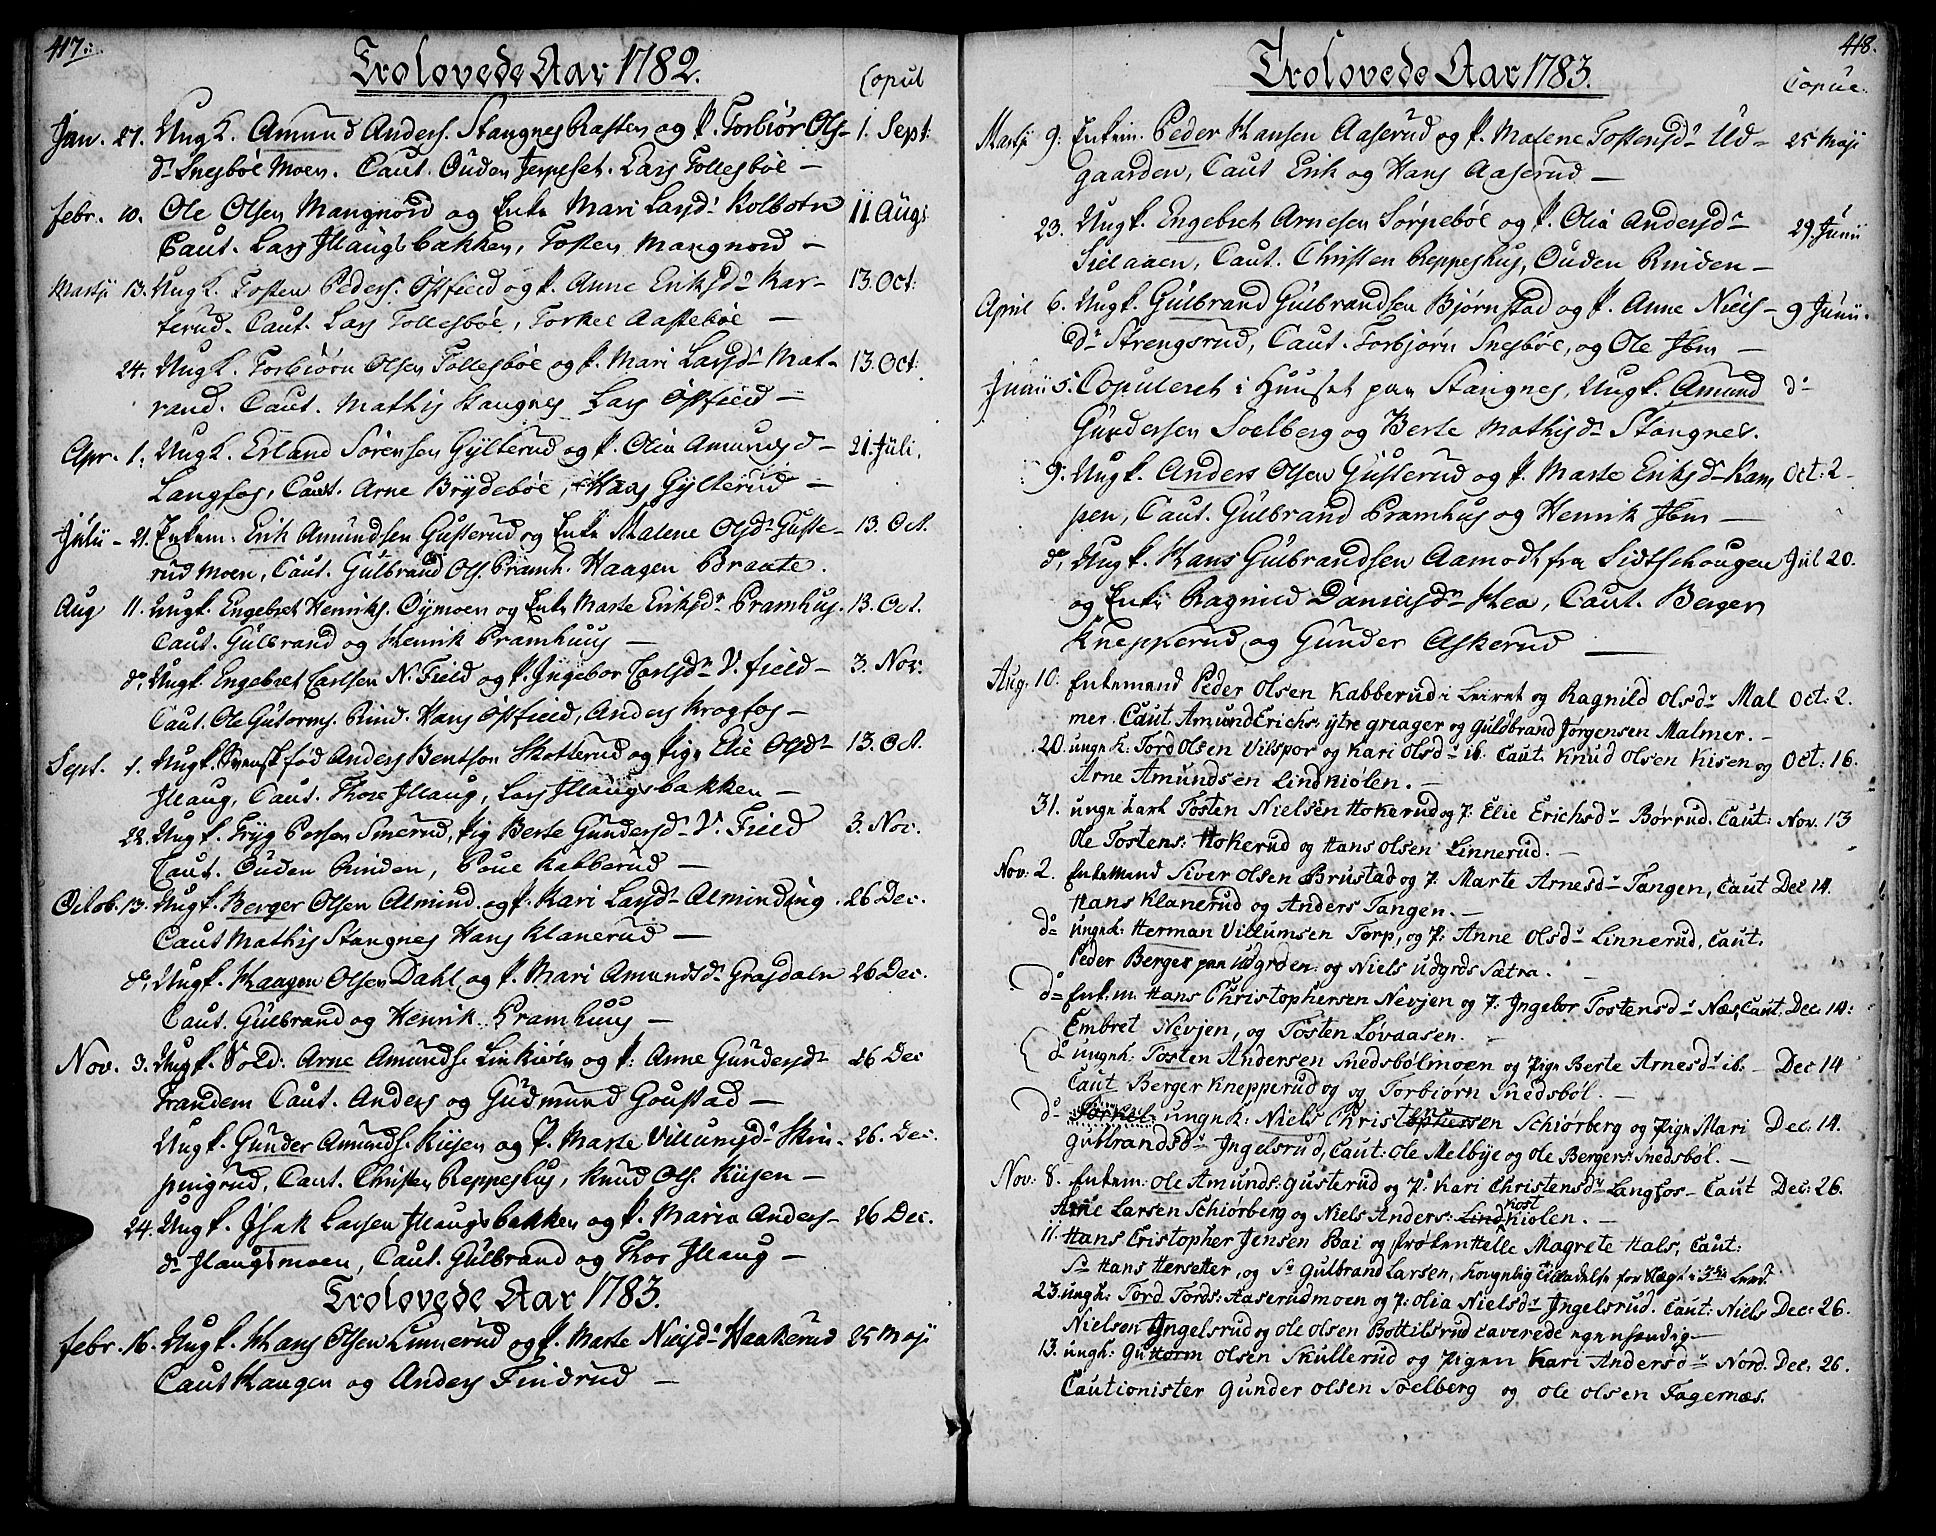 417.
Trolovede Aar 1782.
Copul
Jan. 27. Ung K. Amund Anders. Stangnes Kasten og P. Torbiør Ols- 1. Sept:
dr Snesbøl Moen. Caut. Ouden Jerpeset. Lars Tollesbøl —
Febr. 10. Ole Olsen Mangnord og Enke Mari Larsdr Kolbotn 11 Augs
Caut. Lars Illaugsbakken, Tosten Mangnord —
Martji 13. Ung K. Tosten Peders. Østfield og P. Anne Eriksdr Kar- 13. Oct:
terud. Caut. Lars Tollesbøl, Torkel Aastebøl —
24. Ung K. Torbiørn Olsen Tollesbøl og P. Mari Larsdr Mat- 13. Oct:
rand. Caut. Mathis Stangnes Lars Østfield —
Apr. 1. Ung K. Erland Sørensen Gylterud og P. Olia Amundsd- 21. Juli.
Langfos, Caut. Arne Brydebøl, Hans Gylterud —
Julii - 21. Enkem. Erik Amundsen Gusterud og Enke Malene Olsdr Guste- 13. Oct.
rud Moen, Caut. Gulbrand Ols. Pramh. Haagen Braate.
Aug 11. Ungk. Engebret Henriks. Oymoen og Enke Marte Eriksdr Pramhus. 13. Oct.
Caut. Gulbrand og Henrik Pramhuus —
do, Ungk. Engebret Carlsen N. Field og P. Ingebor Carlsdr V. Field — 3. Nov:
Caut. Ole Gutorms. Rind. Hans Østfield, Anders Krogfos —
Sept. 1. Ungk. Svensk fød Anders Bentson Skotterud og Pige Elie Olsdr 13. Oct.
Illaug, Caut. Thore Illaug, Lars Illaugsbakken —
22. Ungk. Tryg Persen Smerud, Pig Berte Gundersdr V. Field 3. Nov.
Caut. Ouden Rinden, Povel Kabberud —
Octob. 13. Ungk. Berger Olsen Almind. og P. Kari Larsdr Alminding. 26 Dec.
Caut Mathis Stangnes Hans Klanerud —
do, Ungk. Haagen Olsen Dahl og P. Mari Amundsdr Grasdaln 26 Dec.
Caut. Gulbrand og Henrik Pramhuus —
Nov. 3. Ungk. Sold: Arne Amunds. Linkiøln og P: Anne Gundersdr 26 Dec
Trandem Caut. Anders og Gudmund Goustad —
Ungk. Gunder Amunds. Kiisen og P. Marte Villumsdr Skin- 26. Dec.
pungrud, Caut. Christen Reppeshus, Knud Ols. Kiisen —
24. Ungk. Isak Larsen Illaugsbakken og P. Maria Anders- 26 Dec.
dr Illaugsmoen, Caut. Gulbrand og Thor Illaug —
Trolovede Aar 1783.
Febr. 16. Ungk. Hans Olsen Linnerud og P. Marte Nielsdr Haakerud 25 Maji
Caut Haagen og Anders Findrud —
418.
Trolovede Aar 1783.
Copul.
Martji 9. Enkem. Peder Hansen Aaserud og P. Malene Tostensdr Ud- 25 Maji
gaarden, Caut Erik og Hans Aaserud —
23. Ungk. Engebret Arnesen Sørpebøl og P. Olia Andersdr 29. Junii
Sielaaen, Caut. Christen Reppeshus, Ouden Rinden —
April 6. Ungk. Gulbrand Gulbrandsen Bjørnstad og P. Anne Niels- 9 Junii.
dr Strengsrud, Caut. Torbjørn Snesbøl, og Ole Ibm —
Junii 5. Copuleret i Huuset paa Stangnes, Ungk. Amund do
Gundersen Soelberg og Berte Mathisdr Stangnes.
9. Ungk. Anders Olsen Gusterud og P. Marte Eriksdr Kam Oct: 2-
pen, Caut. Gulbrand Pramhus og Henrik Ibm —
do, Ungk. Hans Gulbrandsen Aamodt fra Lidtschougen Jul 20.
og Enke Ragnild Danielsdr Hea, Caut. Berger
Knepperud og Gunder Askerud —
Aug. 10. Enkemand Peder Olsen Kabberud i Leiret og Ragnild Olsdr Mal Oct: 2.
mer. Caut. Amund Erichs: ytre greager og Guldbrand Jørgensen Malmer. —
20. ungk: Tord Olsen Vilspor og Kari Olsdr ib. Caut. Knud Olsen Kisen og Oct: 16.
Arne Amundsen Lindkiølen. —
31. ungkarl Tosten Nielsen Hokerud og P: Elie Erichsdr Børrud. Caut: Nov. 13
Ole Tostens: Hokerud og Hans Olsen Linnerud. —
Nov: 2. Enkemand Siver Olsen Brustad og P: Marte Arnesdr Tangen, Caut Dec 14.
Hans Klanerud og Anders Tangen. —
do ungk: Herman Villumsen Torp, og P: Anne Olsdr Linnerud, Caut:
Peder Berger paa Udgrden og Niels Udgrds Sætra. —
do Enk.m. Hans Christophersen Nevjen og P: Ingebor Tostensdr Næs, Caut. Dec: 14:
Embret Nevjen, og Tosten Løvaasen. —
do ungk: Tosten Andersen Snedsbølmoen og Pign Berte Arnesdr ib. — Dec 14
Caut. Berger Knepperud og og Torbiørn Snedsbøl. —
do ungk: Niels Christophersen Schiørberg og Pign Mari Dec: 14.
Gulbrandsdr Ingelsrud, Caut: Ole Melbye og Ole Bergers: Snedsbøl. —
Nov: 8. Enkem: Ole Amunds: Gusterud og P: Kari Christensdr Langfos — Caut Dec: 26.
Arne Larsen Schiørberg og Niels Anders: Lindkiolen. —
11. Hans Cristopher Jensen Bai og frøken Helle Magrete Hals, Caut:
Sr Hans Hersetter, og Sr Gulbrand Larsen, Kongelig Tilladelse for Slægt i 3die Leed.
23. ungk: Tord Tords: Aaserudmoen og P: Olia Nielsdr Ingelsrud. Caut: Niels Dec: 26.
Nielsen Ingelsrud og Ole Olsen Bottilsrud caverede egenhændig —
13. ungk: Guttorm Olsen Skullerud og Pigen Kari Andersdr Nord. Dec: 26.
Cautionister Gunder Olsen Soelberg og Ole Olsen Fagernæs.